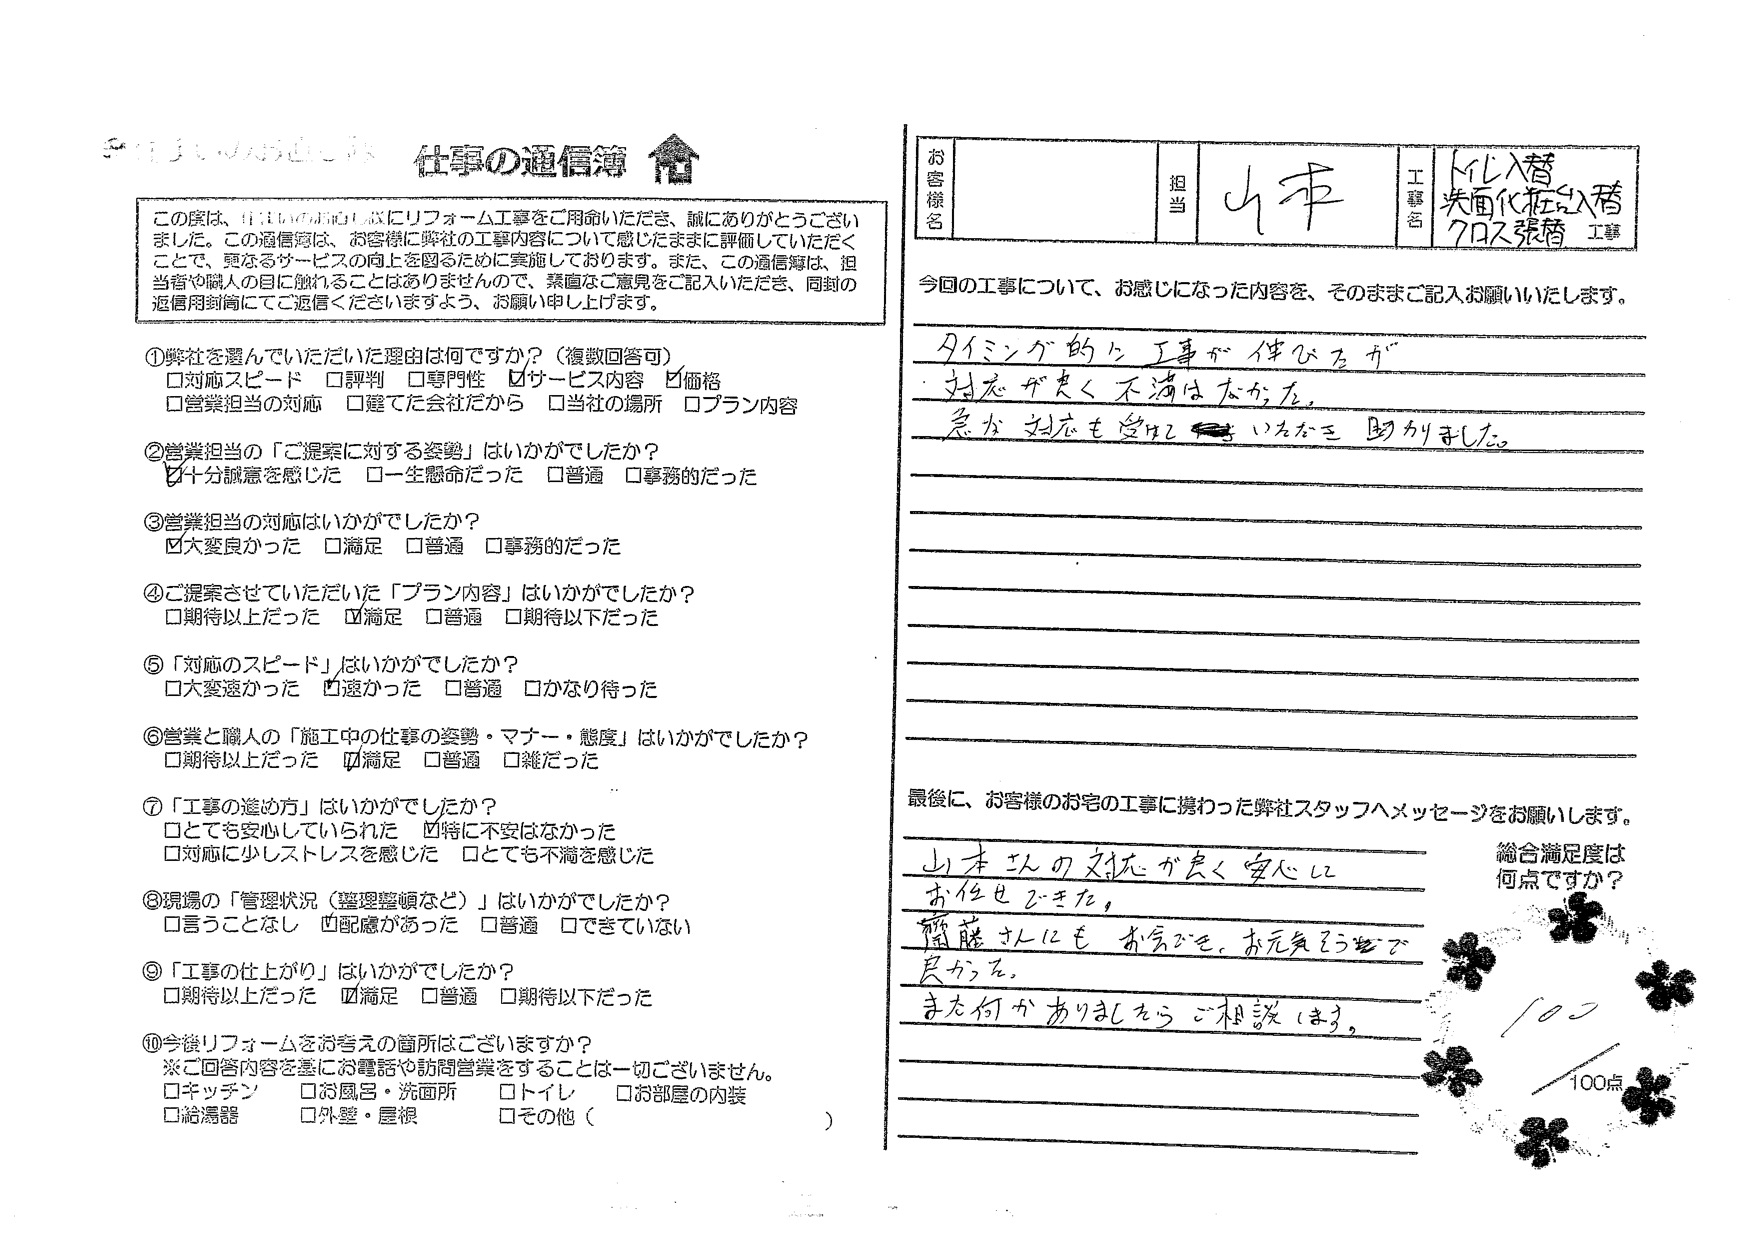 仕事の通信簿
この度は、住まいのお直し隊にリフォーム工事をご用命いただき、誠にありがとうござい
ました。この通信簿は、お客様に弊社の工事内容について感じたままに評価していただく
ことで、更なるサービスの向上を図るために実施しております。また、この通信簿は、担
当者や職人の目に触れることはありませんので、率直なご意見をご記入いただき、同封の
返信用封筒にてご返信くださいますよう、お願い申し上げます。
①弊社を選んでいただいた理由は何ですか？（複数回答可）
□対応スピード □評判 □専門性 ☑サービス内容 ☑価格
□営業担当の対応 □建てた会社だから □当社の場所 □プラン内容
②営業担当の「ご提案に対する姿勢」はいかがでしたか？
☑十分誠意を感じた □一生懸命だった □普通 □事務的だった
③営業担当の対応はいかがでしたか？
☑大変良かった □満足 □普通 □事務的だった
④ご提案させていただいた「プラン内容」はいかがでしたか？
□期待以上だった ☑満足 □普通 □期待以下だった
⑤「対応のスピード」はいかがでしたか？
□大変速かった ☑速かった □普通 □かなり待った
⑥営業と職人の「施工中の仕事の姿勢・マナー・態度」はいかがでしたか？
□期待以上だった ☑満足 □普通 □雑だった
⑦「工事の進め方」はいかがでしたか？
□とても安心していられた ☑特に不安はなかった
□対応に少しストレスを感じた □とても不満を感じた
⑧現場の「管理状況（整理整頓など）」はいかがでしたか？
□言うことなし ☑配慮があった □普通 □できていない
⑨「工事の仕上がり」はいかがでしたか？
□期待以上だった ☑満足 □普通 □期待以下だった
⑩今後リフォームをお考えの箇所はございますか？
※ご回答内容を基にお電話や訪問営業をすることは一切ございません。
□キッチン □お風呂・洗面所 □トイレ □お部屋の内装
□給湯器 □外壁・屋根 □その他（ ）
お客様名 担当 山本 工事名 トイレ入替
洗面化粧台入替
クロス張替 工事
今回の工事について、お感じになった内容を、そのままご記入お願いいたします。
タイミング的に工事が伸びたが
対応が良く不満はなかった。
急な対応も受けて いただき 助かりました。
最後に、お客様のお宅の工事に携わった弊社スタッフへメッセージをお願いします。
山本さんの対応が良く安心して
お任せできた。
齋藤さんにも お会でき、お元気そうで
良かった。
また何かありましたら ご相談します。
総合満足度は
何点ですか？
100
／100点